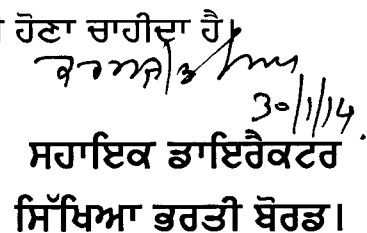 ਹੋਣਾ ਚਾਹੀਦਾ ਹੈ।
30/1/14
ਸਹਾਇਕ ਡਾਇਰੈਕਟਰ
ਸਿੱਖਿਆ ਭਰਤੀ ਬੋਰਡ।